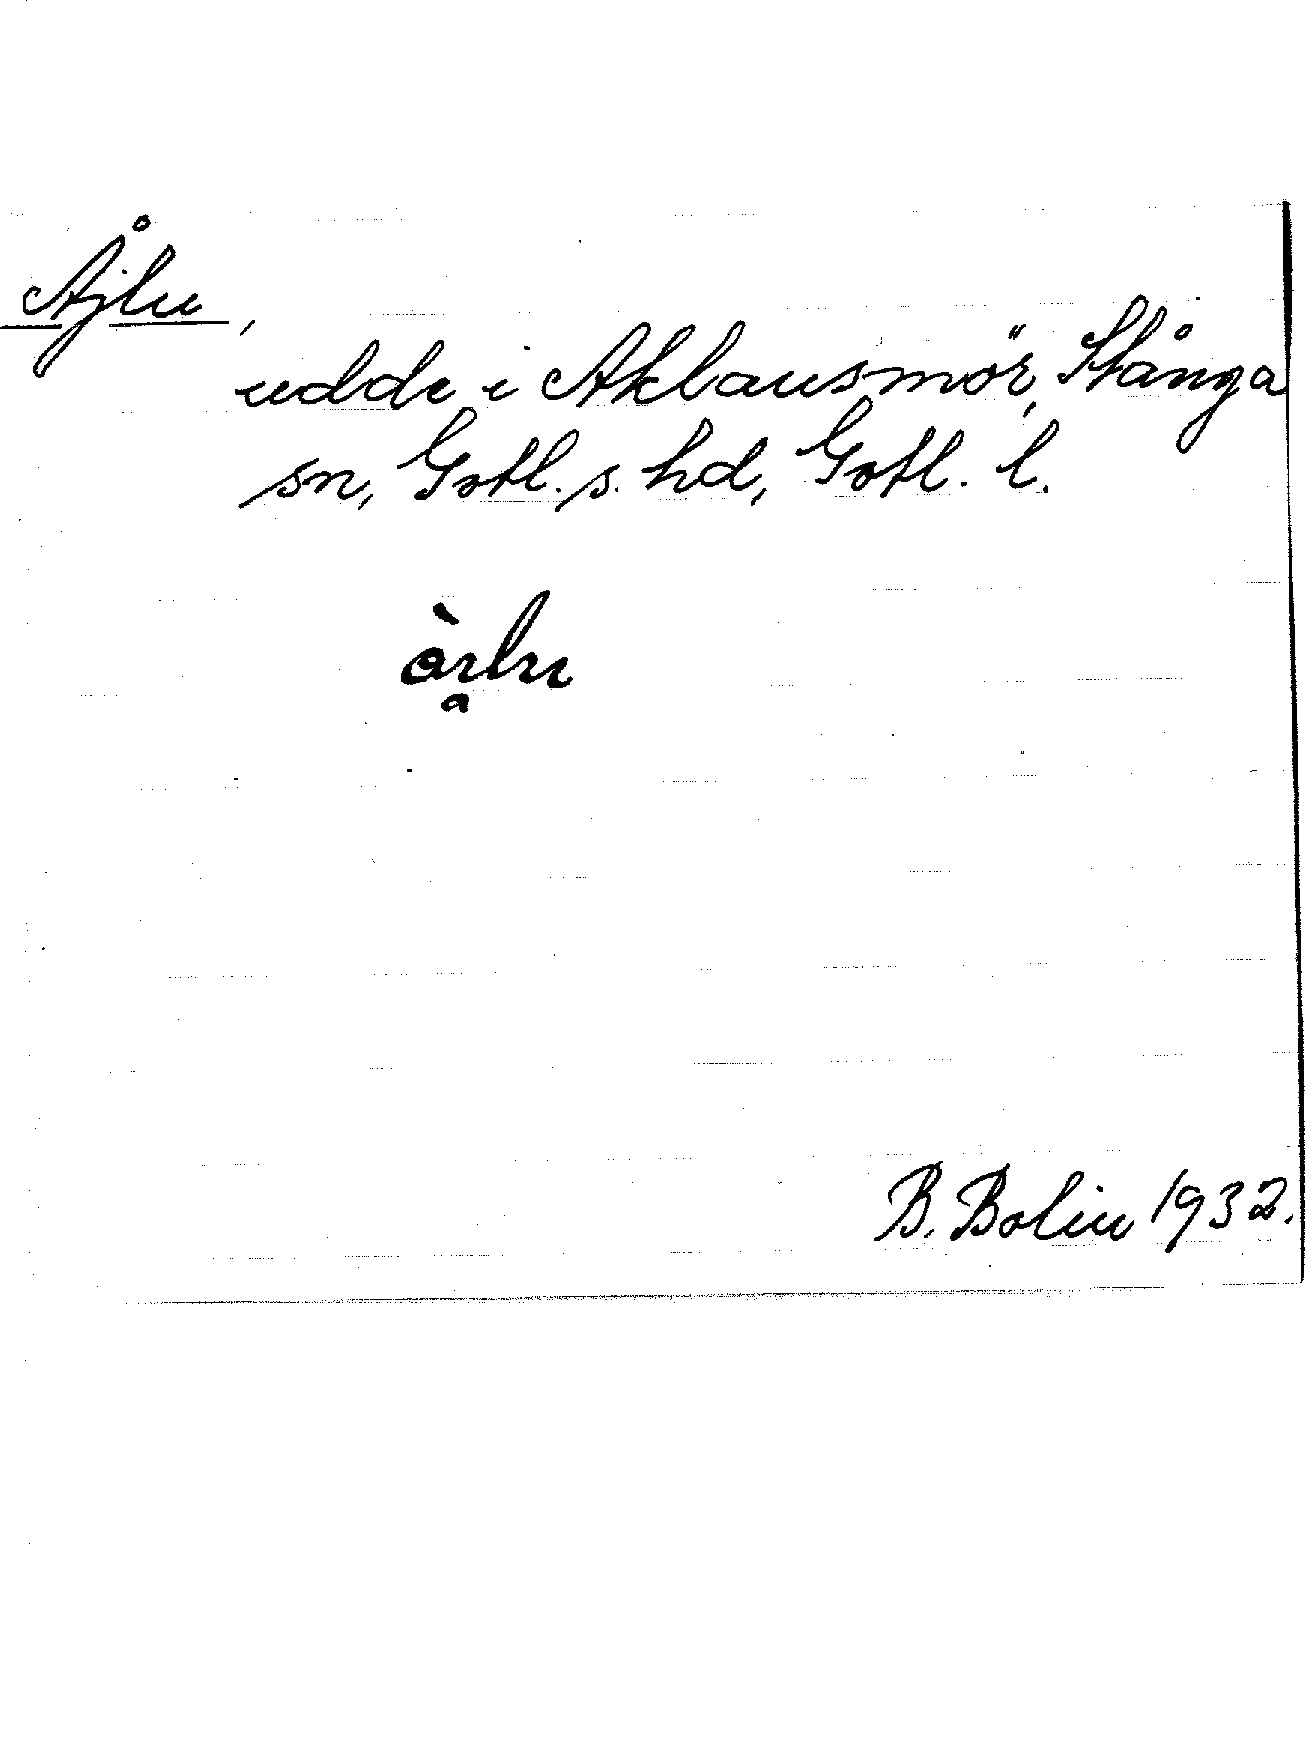 Åjlu,
udde i Aklausmör, Stånga
sn, Gotl. s. hd, Gotl. l.
B. Bolin 1932.